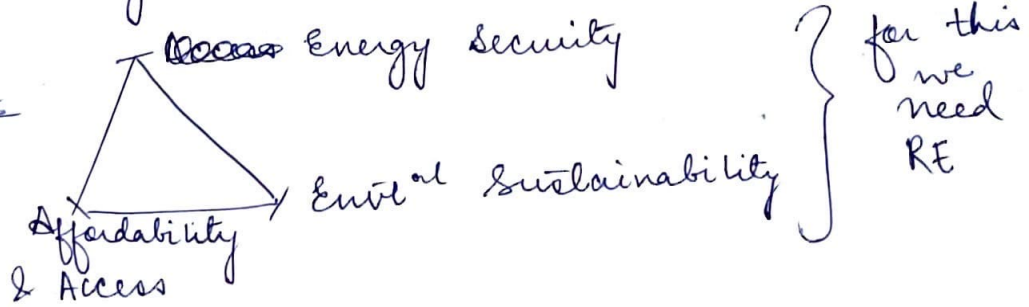 Energy Security
Envt al Sustainability
Affordability
& Access
for this
we
need
RE